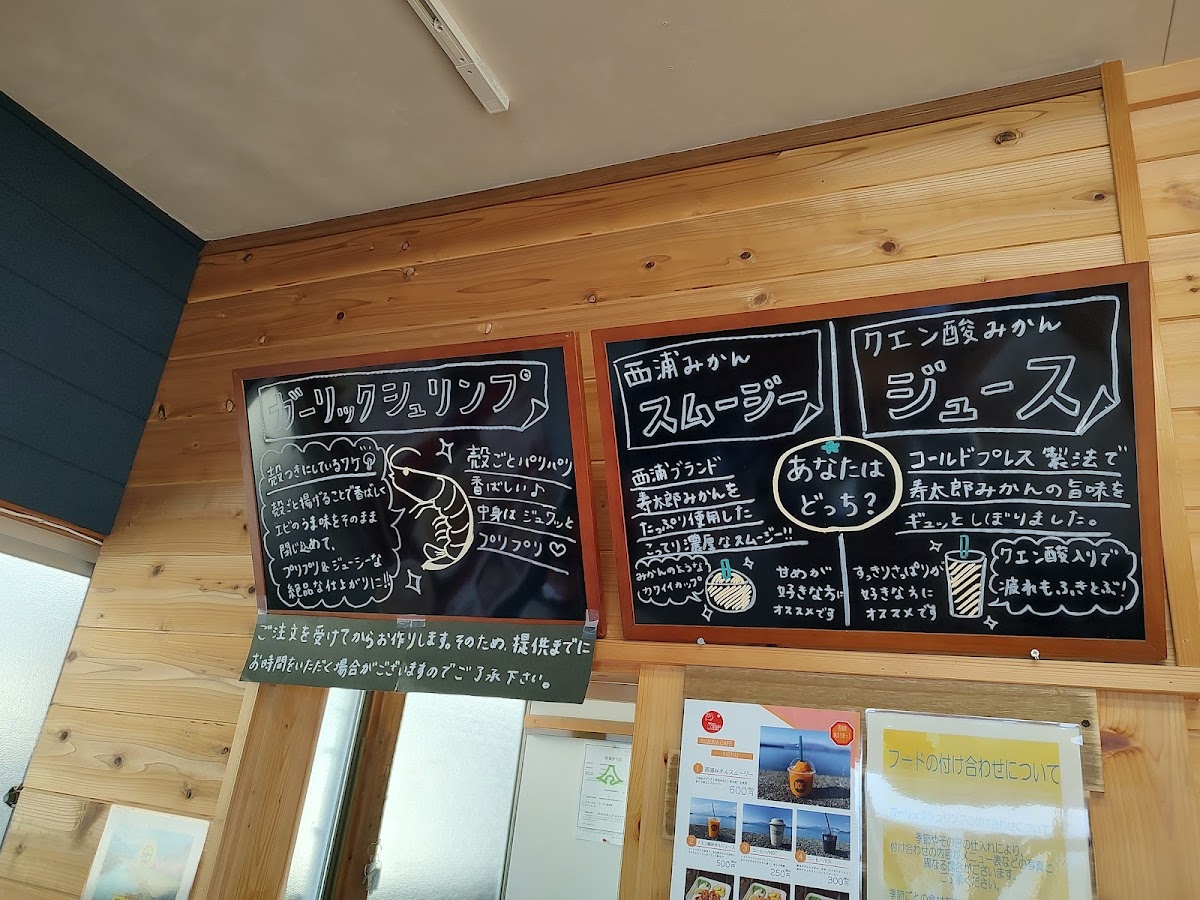 ガーリックシュリンプ
殻つきにしているワケ
殻ごと揚げることで香ばしく
エビのうま味をそのまま
閉じ込めて、
プリプリ&ジューシーな
絶品な仕上がりに!!
殻ごとパリパリ
香ばしい♪
中身はジュワッと
プリプリ♡
ご注文を受けてからお作りします。そのため、提供までに
お時間をいただく場合がございますのでご了承下さい。
西浦みかん
スムージー
西浦ブランド
寿太郎みかんを
たっぷり使用した
こってり濃厚なスムージー!!
みかんのような
カワイイカップ
甘めが
好きな方に
オススメです
あなたは
どっち?
クエン酸みかん
ジュース
コールドプレス製法で
寿太郎みかんの旨味を
ギュッとしぼりました。
すっきりさっぱりが
好きな方に
オススメです
クエン酸入りで
疲れもふきとぶ!
MENU
1 西浦みかんスムージー
600円
2
500円
3
250円
4
300円
フードの付け合わせについて
ガーリックシュリンプの付け合わせについて
季節やその日の仕入れにより、
付け合わせの内容がメニュー表などの写真と
異なる場合がございます。
ご了承ください。